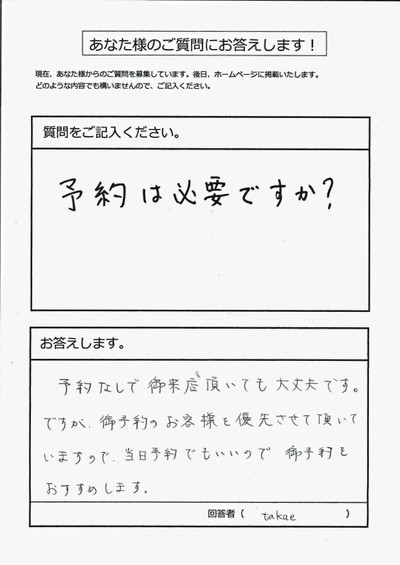 あなた様のご質問にお答えします！
現在、あなた様からのご質問を募集しています。後日、ホームページに掲載いたします。
どのような内容でも構いませんので、ご記入ください。
質問をご記入ください。
予約は必要ですか？
お答えします。
予約なしで御来店頂いても大丈夫です。
ですが、御予約のお客様を優先させて頂いて
いますので、当日予約でもいいので 御予約を
おすすめします。
回答者（ takae ）